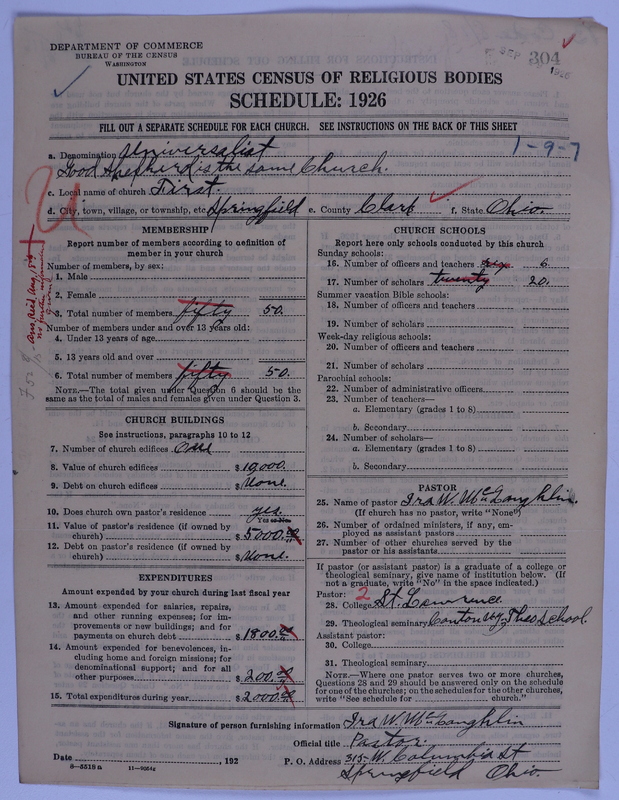 DEPARTMENT OF COMMERCE
BUREAU OF THE CENSUS
WASHINGTON
SEP 1926
304
UNITED STATES CENSUS OF RELIGIOUS BODIES
SCHEDULE: 1926
FILL OUT A SEPARATE SCHEDULE FOR EACH CHURCH. SEE INSTRUCTIONS ON THE BACK OF THIS SHEET
1-9-7
a. Denomination Universalist
Good Shepherd is the same Church.
c. Local name of church First
d. City, town, village, or township, etc. Springfield e. County Clark f. State Ohio.
MEMBERSHIP
Report number of members according to definition of
member in your church
Number of members, by sex:
1. Male
2. Female
3. Total number of members fifty 50.
Number of members under and over 13 years old:
4. Under 13 years of age
5. 13 years old and over
6. Total number of members fifty 50.
NOTE.—The total given under Question 6 should be the
same as the total of males and females given under Question 3.
CHURCH BUILDINGS
See instructions, paragraphs 10 to 12
7. Number of church edifices One
8. Value of church edifices $ 10,000.
9. Debt on church edifices $ None.
10. Does church own pastor's residence yes.
Yes or No
11. Value of pastor's residence (if owned by
church) $ 5000.00
12. Debt on pastor's residence (if owned by
church) $ None.
EXPENDITURES
Amount expended by your church during last fiscal year
13. Amount expended for salaries, repairs,
and other running expenses; for im-
provements or new buildings; and for
payments on church debt $ 1800.00
14. Amount expended for benevolences, in-
cluding home and foreign missions; for
denominational support; and for all
other purposes $ 200.00
15. Total expenditures during year $ 2000.00
CHURCH SCHOOLS
Report here only schools conducted by this church
Sunday schools:
16. Number of officers and teachers six 6.
17. Number of scholars twenty 20.
Summer vacation Bible schools:
18. Number of officers and teachers
19. Number of scholars
Week-day religious schools:
20. Number of officers and teachers
21. Number of scholars
Parochial schools:
22. Number of administrative officers
23. Number of teachers—
a. Elementary (grades 1 to 8)
b. Secondary
24. Number of scholars—
a. Elementary (grades 1 to 8)
b. Secondary
PASTOR
25. Name of pastor Ira W. McLaughlin.
(If church has no pastor, write "None")
26. Number of ordained ministers, if any, em-
ployed as assistant pastors
27. Number of other churches served by the
pastor or his assistants
If pastor (or assistant pastor) is a graduate of a college or
theological seminary, give name of institution below. (If
not a graduate, write "No" in the space indicated.)
Pastor: 2
28. College St. Lawrence.
29. Theological seminary Canton Theo School.
Assistant pastor:
30. College
31. Theological seminary
NOTE.—Where one pastor serves two or more churches,
Questions 28 and 29 should be answered only on the schedule
for one of the churches; on the schedules for the other churches,
write "See schedule for church."
Signature of person furnishing information Ira W. McLaughlin
Official title Pastor.
Date , 192 P. O. Address 315-W. Columbia St
8-5519 a 11-9054
Springfield Ohio.